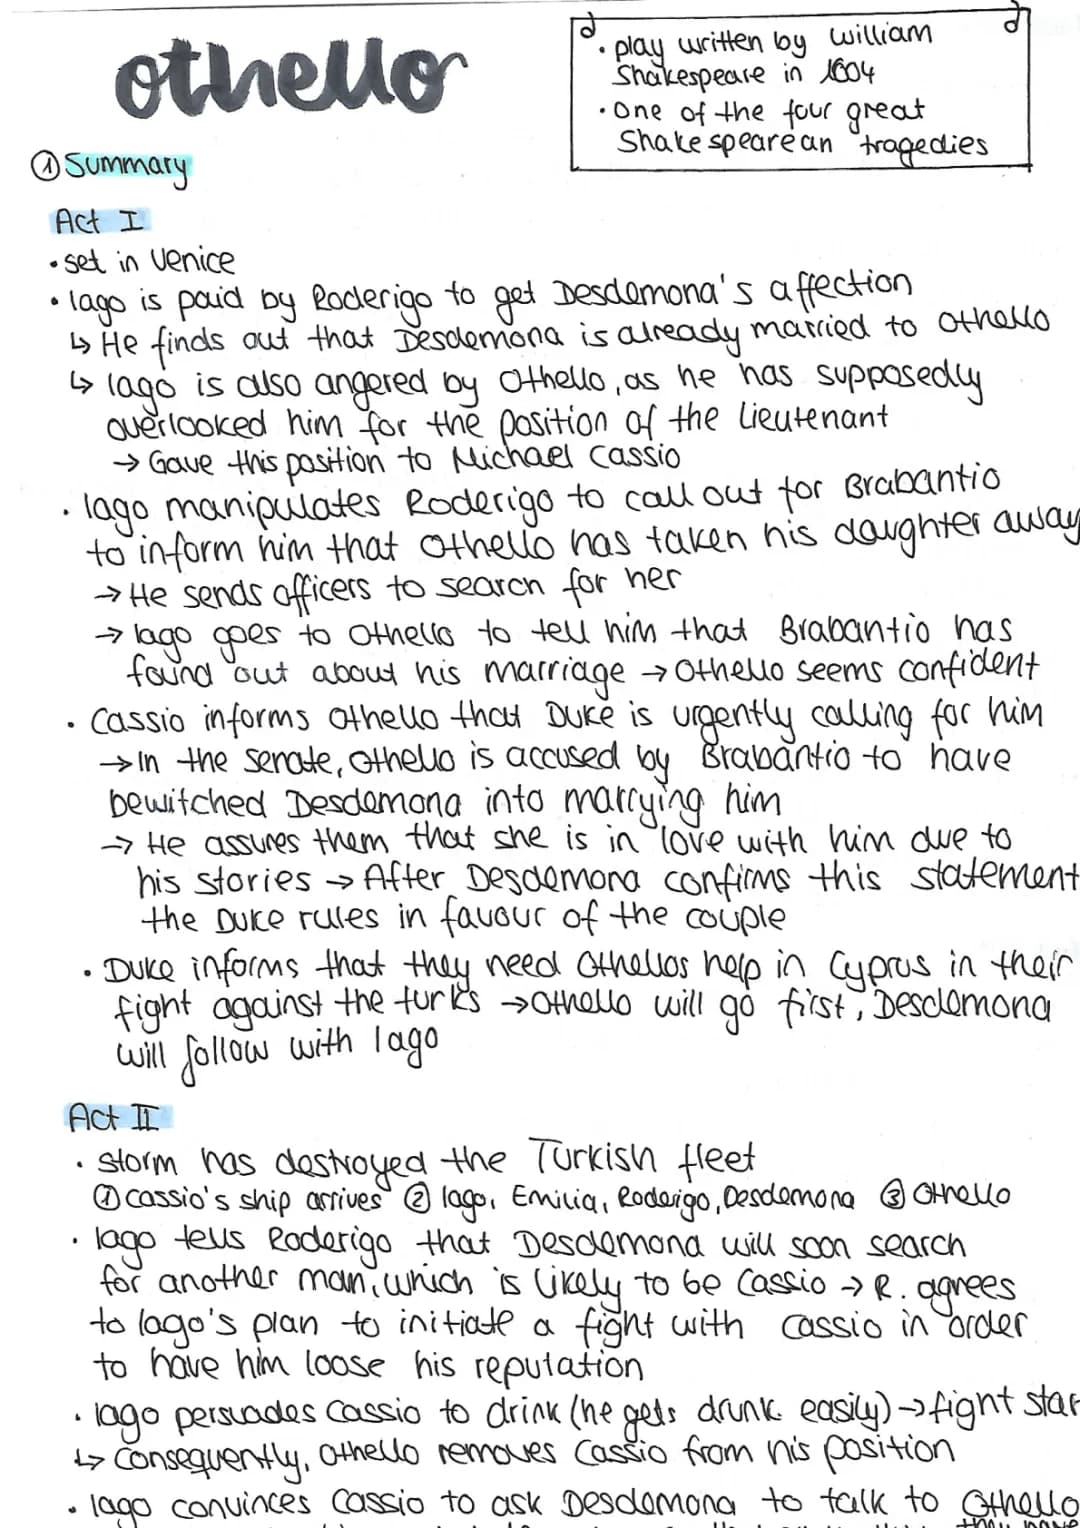 othello
• play written by William
Shakespeare in 1604
• one of the four great
Shakespearean tragedies
① Summary
Act I
• set in Venice
• Iago is paid by Roderigo to get Desdemona's affection
↳ He finds out that Desdemona is already married to Othello
↳ Iago is also angered by Othello, as he has supposedly
overlooked him for the position of the Lieutenant
→ Gave this position to Michael Cassio
• Iago manipulates Roderigo to call out for Brabantio
to inform him that Othello has taken his daughter away
→ He sends officers to search for her
→ Iago goes to Othello to tell him that Brabantio has
found out about his marriage → Othello seems confident
• Cassio informs Othello that Duke is urgently calling for him
→ In the senate, Othello is accused by Brabantio to have
bewitched Desdemona into marrying him
→ He assures them that she is in love with him due to
his stories → After Desdemona confirms this statement
the Duke rules in favour of the couple
• Duke informs that they need Othellos help in Cyprus in their
fight against the turks → Othello will go first, Desdemona
will follow with Iago
Act II
• storm has destroyed the Turkish fleet
① Cassio's ship arrives ② Iago, Emilia, Roderigo, Desdemona ③ Othello
• Iago tells Roderigo that Desdemona will soon search
for another man, which is likely to be Cassio → R. agrees
to Iago's plan to initiate a fight with Cassio in order
to have him loose his reputation
• Iago persuades Cassio to drink (he gets drunk easily) → fight star
↳ Consequently, Othello removes Cassio from his position
• Iago convinces Cassio to ask Desdemona to talk to Othello